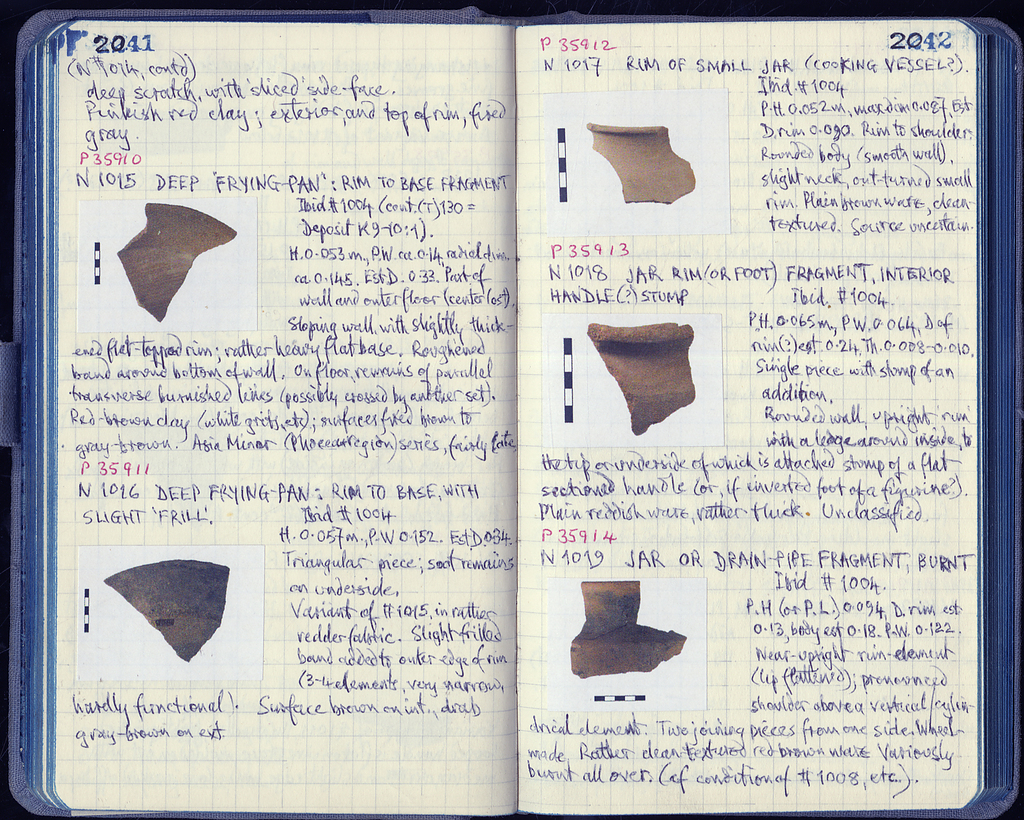 2041
(N#1014, contd)
deep scratch, with sliced side-face.
Pinkish red clay; exterior, and top of rim, fired
gray.
P 35910
N 1015 DEEP 'FRYING-PAN': RIM TO BASE FRAGMENT
Ibid # 1004 (cont. (T) 130 =
Deposit K9-10:1).
H. 0.053m, P.W. ca 0.14, radial dim.
ca 0.145. Est D. 0.33. Part of
wall and outer floor (center lost).
Sloping wall, with slightly thick-
ened flat-topped rim; rather heavy flat base. Roughened
band around bottom of wall. On floor, remains of parallel
transverse burnished lines (possibly crossed by another set).
Red-brown clay (white grits, etc); surfaces fired brown to
gray-brown. Asia Minor (Phocaea region) series, fairly late
P 35911
N 1016 DEEP FRYING-PAN: RIM TO BASE, WITH
SLIGHT 'FRILL'.
Ibid # 1004
H. 0.057m., P.W 0.152. Est D. 0.34.
Triangular piece; soot remains
on underside.
Variant of #1015, in rather
redder fabric. Slight frilled
band added to outer edge of rim
(3-4 elements, very narrow,
hardly functional). Surface brown on int., drab
gray-brown on ext
2042
P 35912
N 1017 RIM OF SMALL JAR (COOKING VESSEL?).
Ibid. # 1004
P.H. 0.052m, max dim 0.087. Est
D. rim 0.090. Rim to shoulder.
Rounded body (smooth wall),
slight neck, out-turned small
rim. Plain brown ware, clean-
textured. Source uncertain.
P 35913
N 1018 JAR RIM (OR FOOT) FRAGMENT, INTERIOR
HANDLE(?) STUMP
Ibid. # 1004.
P.H. 0.065m, P.W. 0.064, D of
rim(?) est. 0.24, Th. 0.008-0.010.
Single piece with stump of an
addition.
Rounded wall, upright rim
with a ledge around inside, to
the tip or underside of which is attached stump of a flat
sectioned handle (or, if inverted foot of a figurine?).
Plain reddish ware, rather thick. Unclassified.
P 35914
N 1019 JAR OR DRAIN-PIPE FRAGMENT, BURNT
Ibid # 1004.
P.H (or P.L.) 0.094, D. rim est
0.13, body est 0.18. P.W. 0.122.
Near-upright rim-element
(lip flattened); pronounced
shoulder above a vertical/cylin-
drical element. Two joining pieces from one side. Wheel-
made. Rather clean-textured red brown ware Variously
burnt all over. (cf condition of # 1008, etc.).